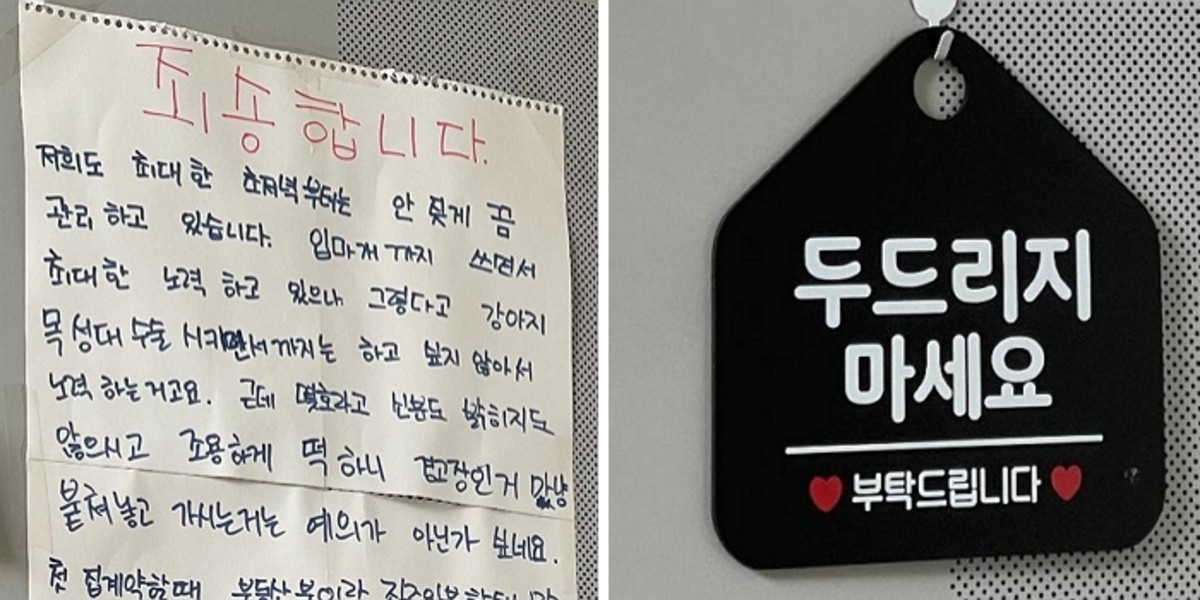 죄송합니다.
저희도 최대한 초저녁부터는 안 짖게 끔
관리 하고 있습니다. 입마개 까지 쓰면서
최대한 노력 하고 있으나 그렇다고 강아지
목 성대 수술 시키면서 까지는 하고 싶지 않아서
노력 하는거고요. 근데 몇호라고 신분도 밝히지도
않으시고 조용하게 떡 하니 경고장인거 마냥
붙혀 놓고 가시는거는 예의가 아닌가 싶네요.
첫 집계약할때 부동산
두드리지
마세요
부탁드립니다